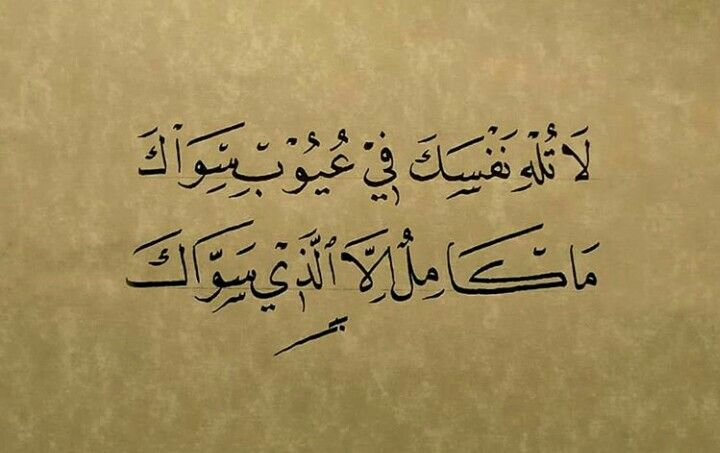 لَا تُلْهِ نَفْسَكَ فِيْ عُيُوْبِ سِوَاْكَ
مَا كَامِلْ إِلَّا ٱلَّذِيْ سَوَّاكَ